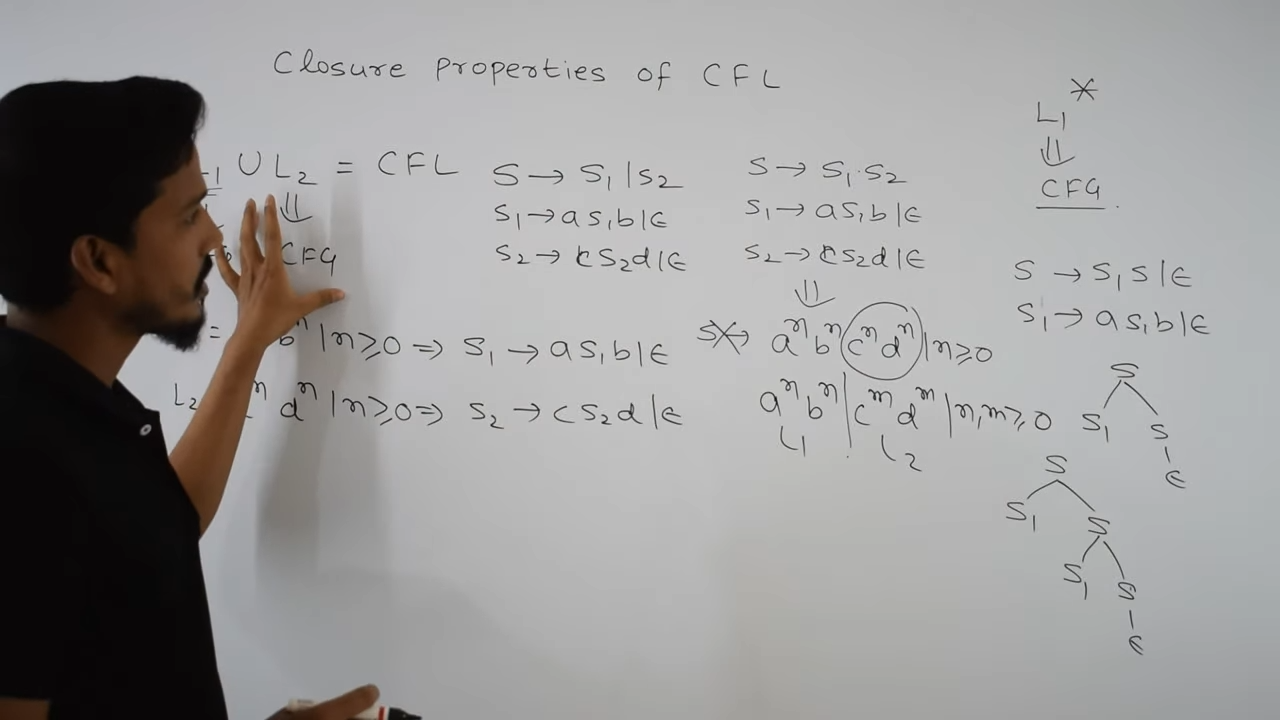 Closure properties of CFL
U L₂ = CFL
⇓
CFG
bⁿ | n≥0 ⇒ S₁ → aS₁b|ϵ
L₂ ⁿ dⁿ | n≥0 ⇒ S₂ → cS₂d|ϵ
S → S₁|S₂
S₁ → aS₁b|ϵ
S₂ → cS₂d|ϵ
S → S₁.S₂
S₁ → aS₁b|ϵ
S₂ → cS₂d|ϵ
⇓
aⁿbⁿcⁿdⁿ|n≥0
aⁿbⁿ|cᵐdᵐ|n,m≥0
L₁ L₂
L₁*
⇓
CFG
S → S₁S|ϵ
S₁ → aS₁b|ϵ
S
S₁ S
ϵ
S
S₁ S
S₁ S
ϵ